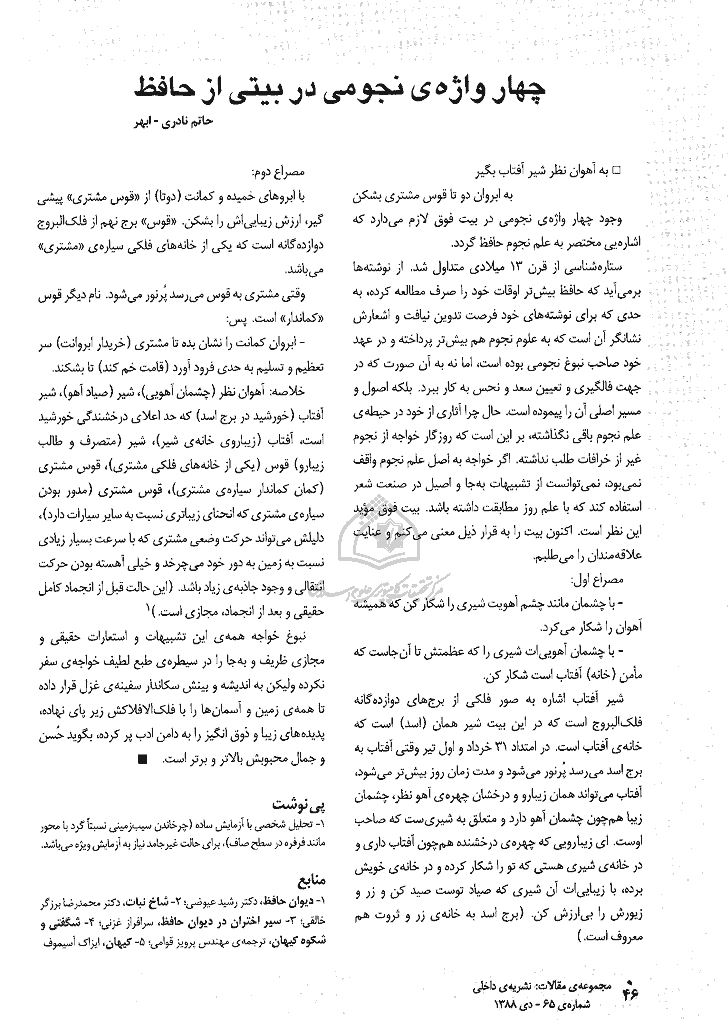 چهار واژه‌ی نجومی در بیتی از حافظ
حاتم نادری - ابهر
□ به آهوان نظر شیر آفتاب بگیر
به ابروان دو تا قوس مشتری بشکن
وجود چهار واژه‌ی نجومی در بیت فوق لازم می‌دارد که
اشاره‌یی مختصر به علم نجوم حافظ گردد.
ستاره‌شناسی از قرن ۱۳ میلادی متداول شد. از نوشته‌ها
برمی‌آید که حافظ بیش‌تر اوقات خود را صرف مطالعه کرده، به
حدی که برای نوشته‌های خود فرصت تدوین نیافت و اشعارش
نشانگر آن است که به علوم نجوم هم بیش‌تر پرداخته و در عهد
خود صاحب نبوغ نجومی بوده است، اما نه به آن صورت که در
جهت فالگیری و تعیین سعد و نحس به کار ببرد. بلکه اصول و
مسیر اصلی آن را پیموده است. حال چرا آثاری از خود در حیطه‌ی
علم نجوم باقی نگذاشته، بر این است که روزگار خواجه از نجوم
غیر از خرافات طلب نداشته. اگر خواجه به اصل علم نجوم واقف
نمی‌بود، نمی‌توانست از تشبیهات به‌جا و اصیل در صنعت شعر
استفاده کند که با علم روز مطابقت داشته باشد. بیت فوق مؤید
این نظر است. اکنون بیت را به قرار ذیل معنی می‌کنم و عنایت
علاقه‌مندان را می‌طلبم.
مصراع اول:
- با چشمان مانند چشم آهویت شیری را شکار کن که همیشه
آهوان را شکار می‌کرد.
- با چشمان آهویی‌ات شیری را که عظمتش تا آن‌جاست که
مأمن (خانه) آفتاب است شکار کن.
شیر آفتاب اشاره به صور فلکی از برج‌های دوازده‌گانه
فلک‌البروج است که در این بیت شیر همان (اسد) است که
خانه‌ی آفتاب است. در امتداد ۳۱ خرداد و اول تیر وقتی آفتاب به
برج اسد می‌رسد پُرنور می‌شود و مدت زمان روز بیش‌تر می‌شود،
آفتاب می‌تواند همان زیبارو و درخشان چهره‌ی آهو نظر، چشمان
زیبا هم‌چون چشمان آهو دارد و متعلق به شیری‌ست که صاحب
اوست. ای زیبارویی که چهره‌ی درخشنده هم‌چون آفتاب داری و
در خانه‌ی شیری هستی که تو را شکار کرده و در خانه‌ی خویش
برده، با زیبایی‌ات آن شیری که صیاد توست صید کن و زر و
زیورش را بی‌ارزش کن. (برج اسد به خانه‌ی زر و ثروت هم
معروف است.)
مصراع دوم:
با ابروهای خمیده و کمانت (دوتا) از «قوس مشتری» پیشی
گیر، ارزش زیبایی‌اش را بشکن. «قوس» برج نهم از فلک‌البروج
دوازده‌گانه است که یکی از خانه‌های فلکی سیاره‌ی «مشتری»
می‌باشد.
وقتی مشتری به قوس می‌رسد پُرنور می‌شود. نام دیگر قوس
«کماندار» است. پس:
- ابروان کمانت را نشان بده تا مشتری (خریدار ابروانت) سر
تعظیم و تسلیم به حدی فرود آورد (قامت خم کند) تا بشکند.
خلاصه: آهوان نظر (چشمان آهویی)، شیر (صیاد آهو)، شیر
آفتاب (خورشید در برج اسد) که حد اعلای درخشندگی خورشید
است، آفتاب (زیباروی خانه‌ی شیر)، شیر (متصرف و طالب
زیبارو) قوس (یکی از خانه‌های فلکی مشتری)، قوس مشتری
(کمان کماندار سیاره‌ی مشتری)، قوس مشتری (مدور بودن
سیاره‌ی مشتری که انحنای زیباتری نسبت به سایر سیارات دارد)،
دلیلش می‌تواند حرکت وضعی مشتری که با سرعت بسیار زیادی
نسبت به زمین به دور خود می‌چرخد و خیلی آهسته بودن حرکت
انتقالی و وجود جاذبه‌ی زیاد باشد. (این حالت قبل از انجماد کامل
حقیقی و بعد از انجماد، مجازی است.)۱
نبوغ خواجه همه‌ی این تشبیهات و استعارات حقیقی و
مجازی ظریف و به‌جا را در سیطره‌ی طبع لطیف خواجه‌ی سفر
نکرده ولیکن به اندیشه و بینش سکاندار سفینه‌ی غزل قرار داده
تا همه‌ی زمین و آسمان‌ها را با فلک‌الافلاکش زیر پای نهاده،
پدیده‌های زیبا و ذوق انگیز را به دامن ادب پر کرده، بگوید حُسن
و جمال محبوبش بالاتر و برتر است. ■
پی‌نوشت
۱- تحلیل شخصی با آزمایش ساده (چرخاندن سیب‌زمینی نسبتاً گرد با محور
مانند فرفره در سطح صاف)، برای حالت غیرجامد نیاز به آزمایش ویژه می‌باشد.
منابع
۱- دیوان حافظ، دکتر رشید عیوضی؛ ۲- شاخ نبات، دکتر محمدرضا برزگر
خالقی؛ ۳- سیر اختران در دیوان حافظ، سرافراز غزنی؛ ۴- شگفتی و
شکوه کیهان، ترجمه‌ی مهندس پرویز قوامی؛ ۵- کیهان، ایزاک آسیموف
۴۶
مجموعه‌ی مقالات: نشریه‌ی داخلی
شماره‌ی ۶۵ - دی ۱۳۸۸